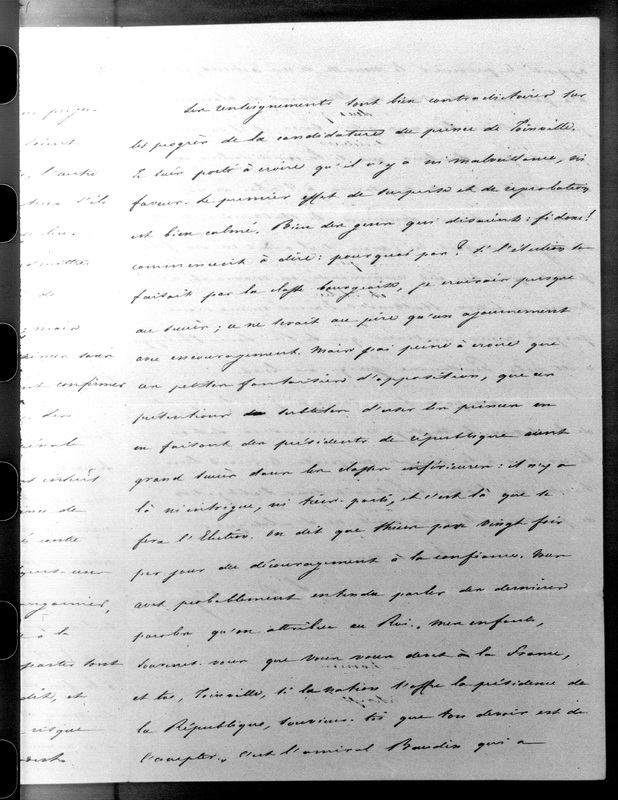 Les renseignements sont bien contradictoires sur
les progrès de la candidature du prince de Joinville.
Je suis porté à croire qu'il n'y a ni malveillance, ni
faveur. Le premier effet de surprise et de réprobation
est bien calmé. Bien des gens qui disaient : fi donc !
commencent à dire : pourquoi pas ? Si l'élection se
faisait par la classe bourgeoise, je croirais presque
au succès ; ce ne serait au pire qu'un ajournement
avec encouragement. Mais j'ai peine à croire que
ces petites fantaisies d'opposition, que ces
prétentions subtiles d'user les princes en
en faisant des présidents de république aient
grand succès dans les classes inférieures : il n'y a
là ni intrigue, ni tiers-parti, et c'est là que se
fera l'Election. On dit que Thiers passe vingt fois
par jour du découragement à la confiance. Vous
avez probablement entendu parler des dernières
paroles qu'on attribue au Roi. Mes enfants,
souvenez-vous que vous vous devez à la France,
et toi, Joinville, si la nation t'offre la présidence de
la République, souviens-toi que ton devoir est de
l'accepter. C'est l'amiral Baudin qui a
l'autre
de
mais
confirmer
des
de
une
Changarnier,
à la
tout
et
risque